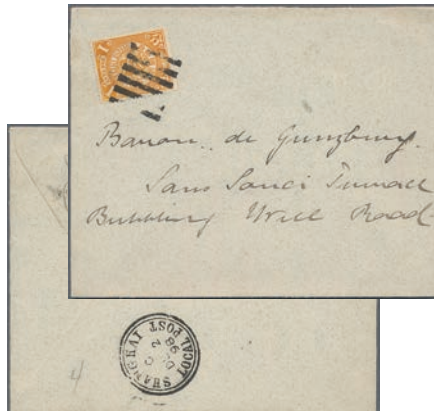 Baron de Gunzburg.
Sans Souci Terrace
Bubbling Well Road
SHANGHAI
LOCAL POST
98